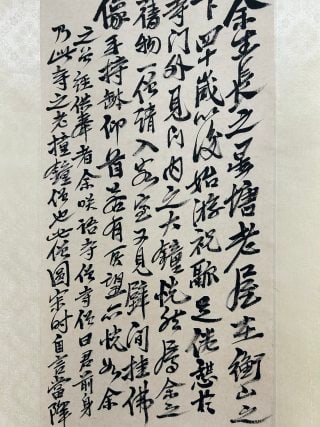 余生長之星塘老屋在衡山之
下四十歲以後始游祝融足倦憩於
寺門外見門內之大鐘恍然為余之
舊物一僧請入客室又見壁間挂佛
像手持缽仰首若有所望心恍如余
之曾經供奉者余咲語寺僧寺僧曰君前身
乃此寺之老撞鐘僧也此僧圓寂時自言當降